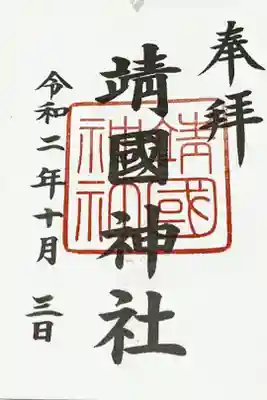 奉拝
靖國神社
令和二年十月三日
靖國
神社